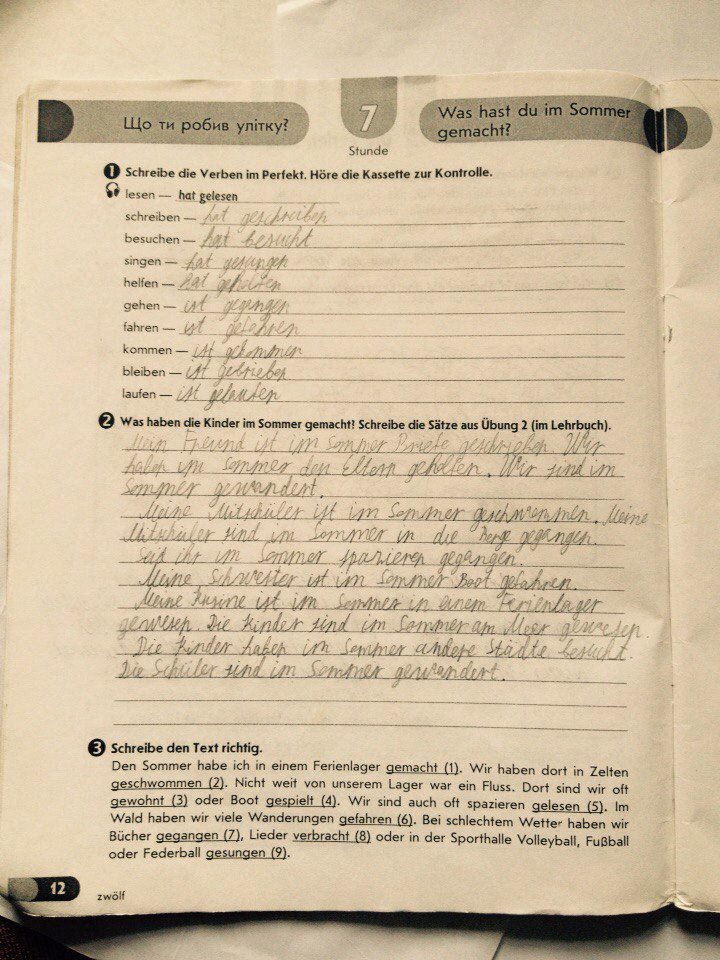 Що ти робив улітку?
7
Stunde
Was hast du im Sommer
gemacht?
1 Schreibe die Verben im Perfekt. Höre die Kassette zur Kontrolle.
lesen — hat gelesen
schreiben — hat geschrieben
besuchen — hat besucht
singen — hat gesungen
helfen — hat geholfen
gehen — ist gegangen
fahren — ist gefahren
kommen — ist gekommen
bleiben — ist gebrieben
laufen — ist gelaufen
2 Was haben die Kinder im Sommer gemacht? Schreibe die Sätze aus Übung 2 (im Lehrbuch).
Mein Freund ist im Sommer Briefe geschrieben. Wir
haben im Sommer den Eltern geholfen. Wir sind im
Sommer gewandert.
Meine Mitschüler ist im Sommer geschwommen. Meine
Mitschüler sind im Sommer in die Berge gegangen.
Seid ihr im Sommer spazieren gegangen.
Meine Schwester ist im Sommer Boot gefahren.
Meine Kusine ist im Sommer in einem Ferienlager
gewesen. Die Kinder sind im Sommer am Meer gewesen.
Die Kinder haben im Sommer andere Städte besucht.
Die Schüler sind im Sommer gewandert.
3 Schreibe den Text richtig.
Den Sommer habe ich in einem Ferienlager gemacht (1). Wir haben dort in Zelten
geschwommen (2). Nicht weit von unserem Lager war ein Fluss. Dort sind wir oft
gewohnt (3) oder Boot gespielt (4). Wir sind auch oft spazieren gelesen (5). Im
Wald haben wir viele Wanderungen gefahren (6). Bei schlechtem Wetter haben wir
Bücher gegangen (7), Lieder verbracht (8) oder in der Sporthalle Volleyball, Fußball
oder Federball gesungen (9).
12
zwölf